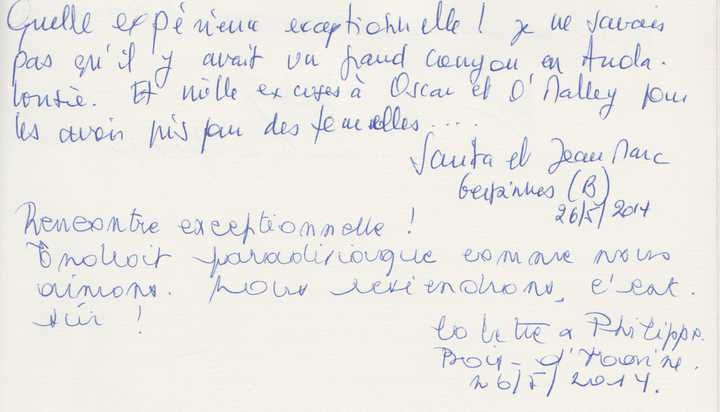 Quelle expérience exceptionnelle ! je ne savais
pas qu'il y avait un grand canyon en Anda-
lousie. Et mille excuses à Oscar et O'Malley pour
les avoir pris pour des femelles....
Santa et Jean Marc
Gerpinnes (B)
26/5/2014
Rencontre exceptionnelle !
Endroit paradisiaque comme nous
aimons. Nous reviendrons, c'est
sûr !
Colette & Philippe.
26/5/2014.